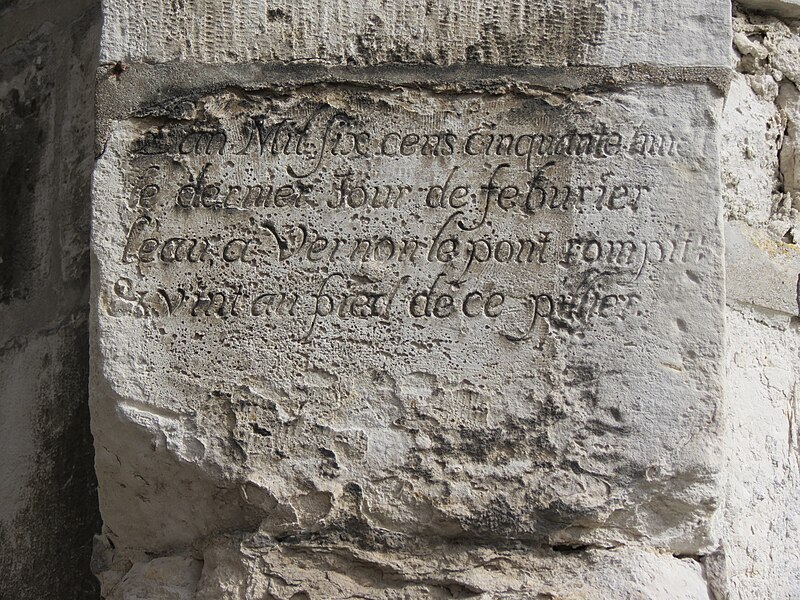 L'an Mil six cens cinquante huit
le dernier Jour de feburier
leau a Vernon le pont rompit
& vint au pied de ce pillier.